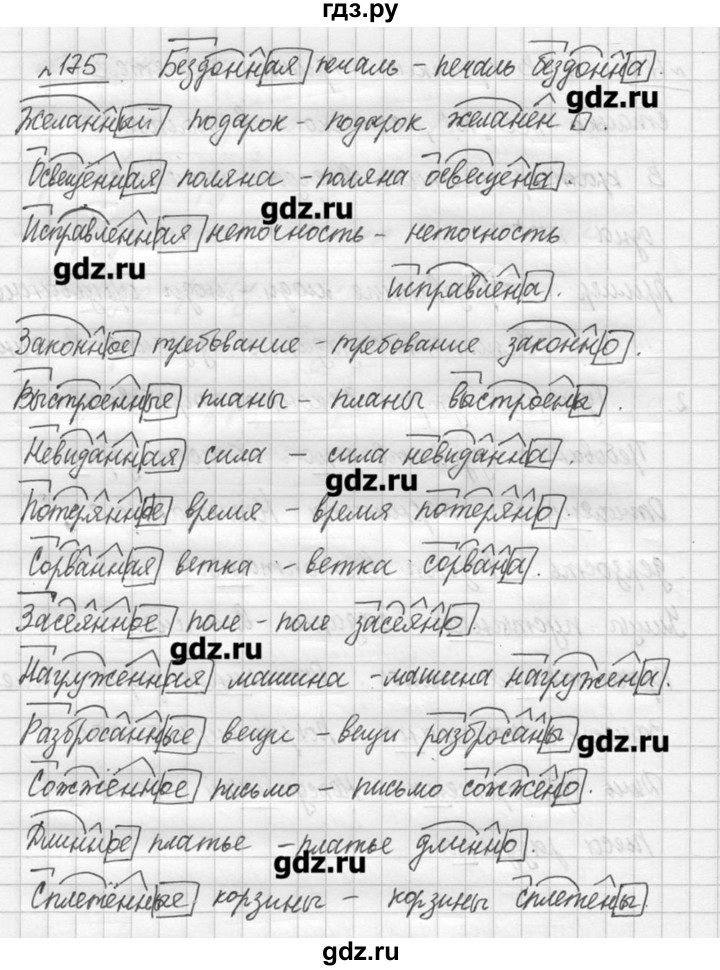 гдз.ру
№175 Бездонная печаль – печаль бездонна.
gdz.ru
Желанный подарок – подарок желанен
Освещённая поляна – поляна освещена.
gdz.ru
Исправленная неточность – неточность
gdz.ru
исправлена.
Законное требование – требование законно.
Выстроенные планы – планы выстроены.
Невиданная сила – сила невиданна.
gdz.ru
Потерянное время – время потеряно.
Сорванная ветка – ветка сорвана.
Засеянное поле – поле засеяно.
gdz.ru
Нагруженная машина – машина нагружена.
Разбросанные вещи – вещи разбросаны
gdz.ru
Сожжённое письмо – письмо сожжено.
Длинное платье – платье длинно.
gdz.ru
Сплетённые корзины – корзины сплетены.
gdz.ru